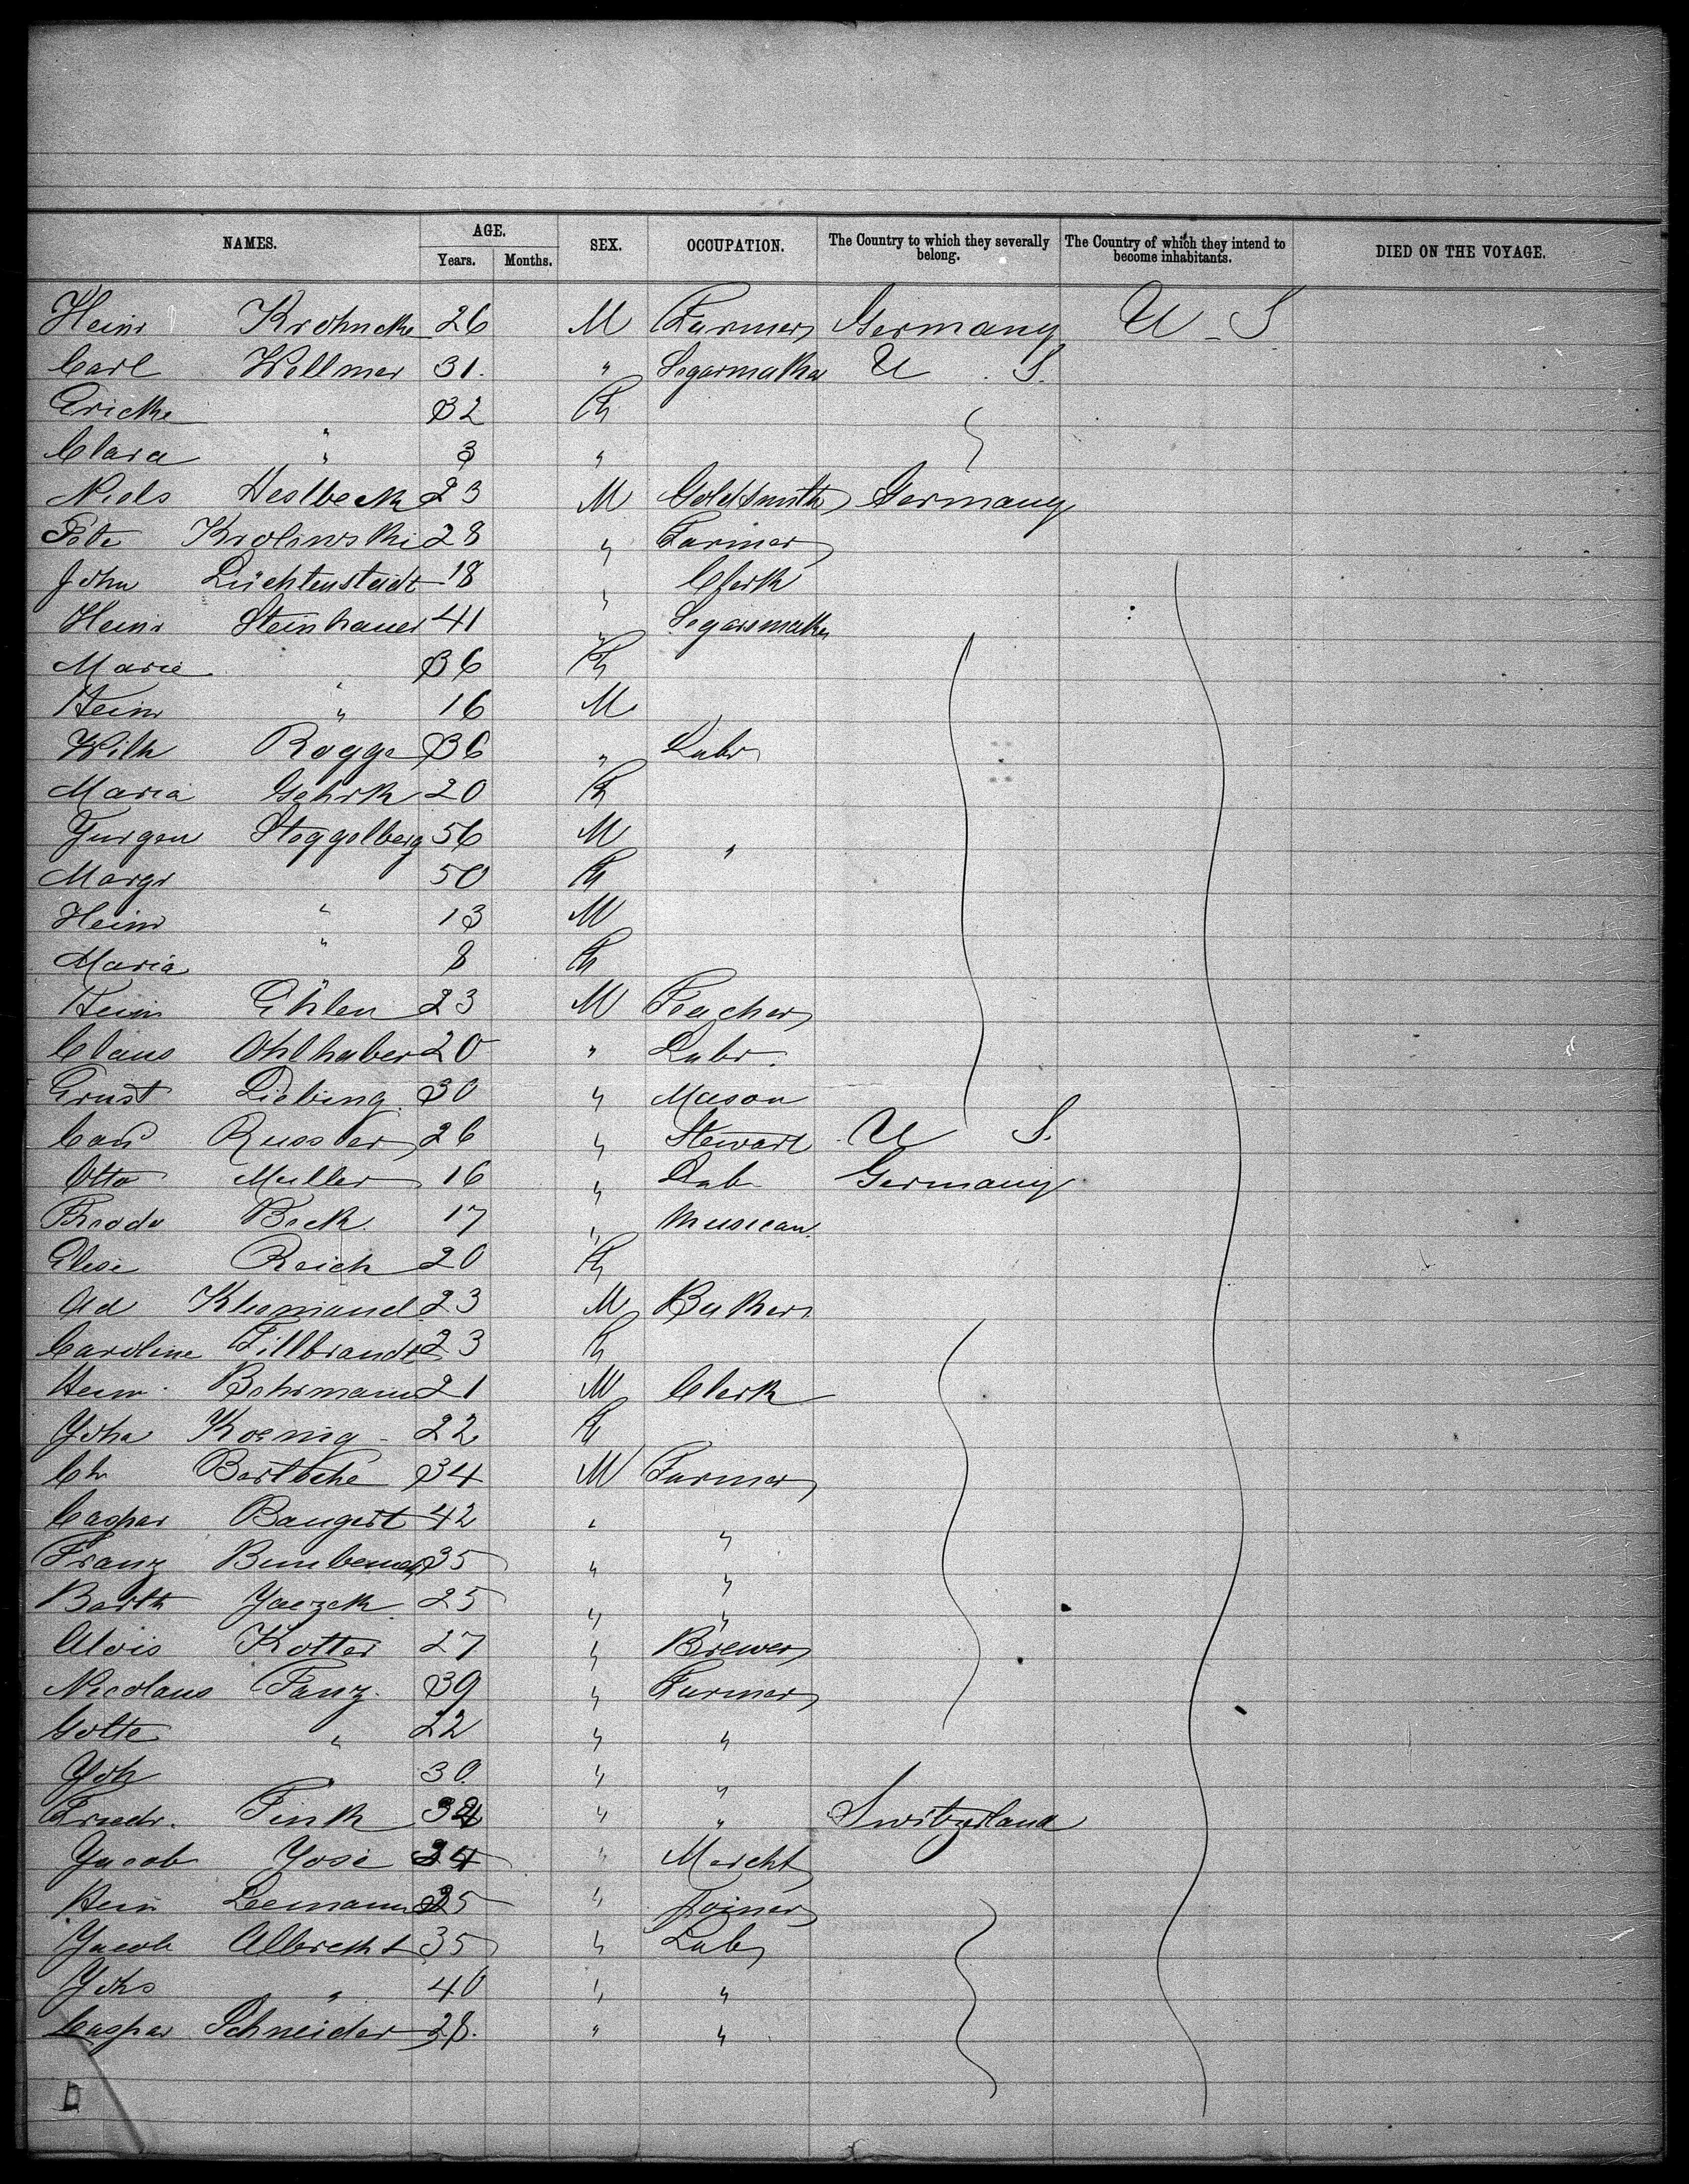 NAMES. AGE. SEX. OCCUPATION. The Country to which they severally belong. The Country of which they intend to become inhabitants. DIED ON THE VOYAGE.
Years. Months.
Heinr Krohncke 26 M Farmer Germany U - S
Carl Wellmer 31. " Segarmaker U . S.
32
Clara " 3 "
Niels Heslbeck 23 M Goldsmith Germany
Pete Krolewski 28 " Farmer
John Lüchtenstadt 18 " Clerk
Heinr Steinhauer 41 " Segarsmaker
Marie " 36
Heinr " 16 M
Wilh Rogge 36 " Labr
Maria Gehrk 20
Jurgen Steggelberg 56 M "
Margr " 50
Heinr " 13 M
Maria " 8
Heinr Ehlen 23 M Teacher
Claus Ohlhaber 20 " Labr.
Ernst Liebing 30 " Mason
Carl Russler 26 " Stewart U S.
Otto Muller 16 " Lab Germany
Theodo Beck 17 " Musican.
Elise Reich 20
Ad 23 M Baker
Caroline Tillbrandt 23
Heinr. Behrmann 21 M Clerk
Joha Koenig - 22
Ch 34 M Farmer
Caspar Baugert 42 " "
Franz 35 " "
Barth Jaczek 25 " "
Alois Kotter 27 " Brewer
Nicolaus Fanz. 39 " Farmer
" 22 " "
Joh " 30. " "
Friedr. Fink 34 " " Switzerland
Jacob Jose 34 " Marcht
Hein Leemann 35 " Joiner
Jacob Albrecht 35 " Lab
Johs " 40 " "
Caspar Schneider 38. " "